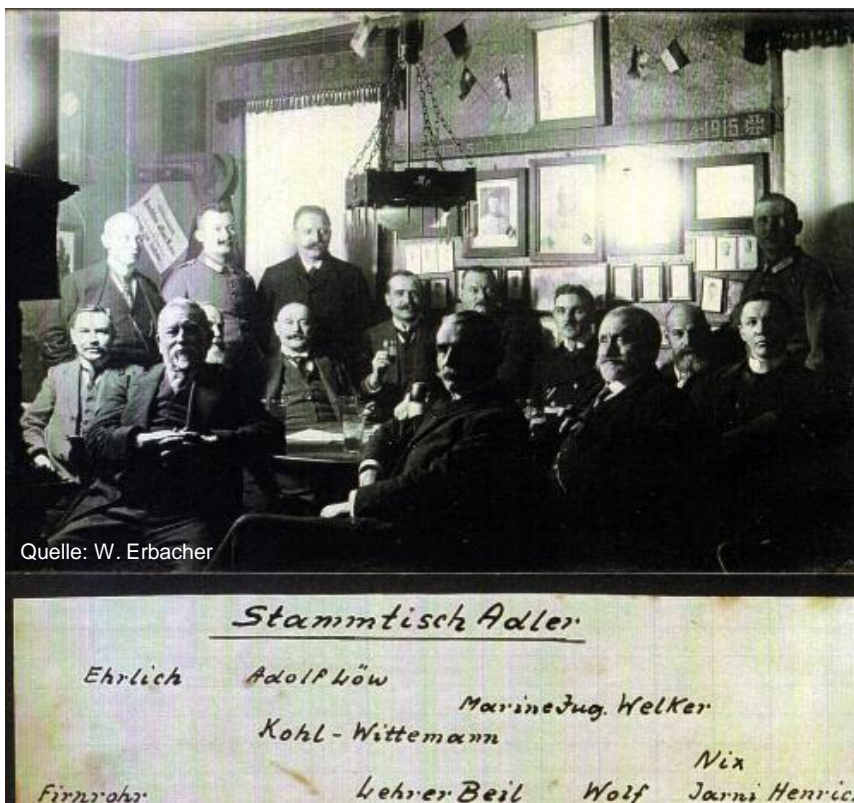 1914-1915
Quelle: W. Erbacher
Stammtisch Adler
Ehrlich Adolf Löw
Marine Jug. Welker
Kohl - Wittemann
Nix
Firnrohr Lehrer Beil Wolf Jarni Henric